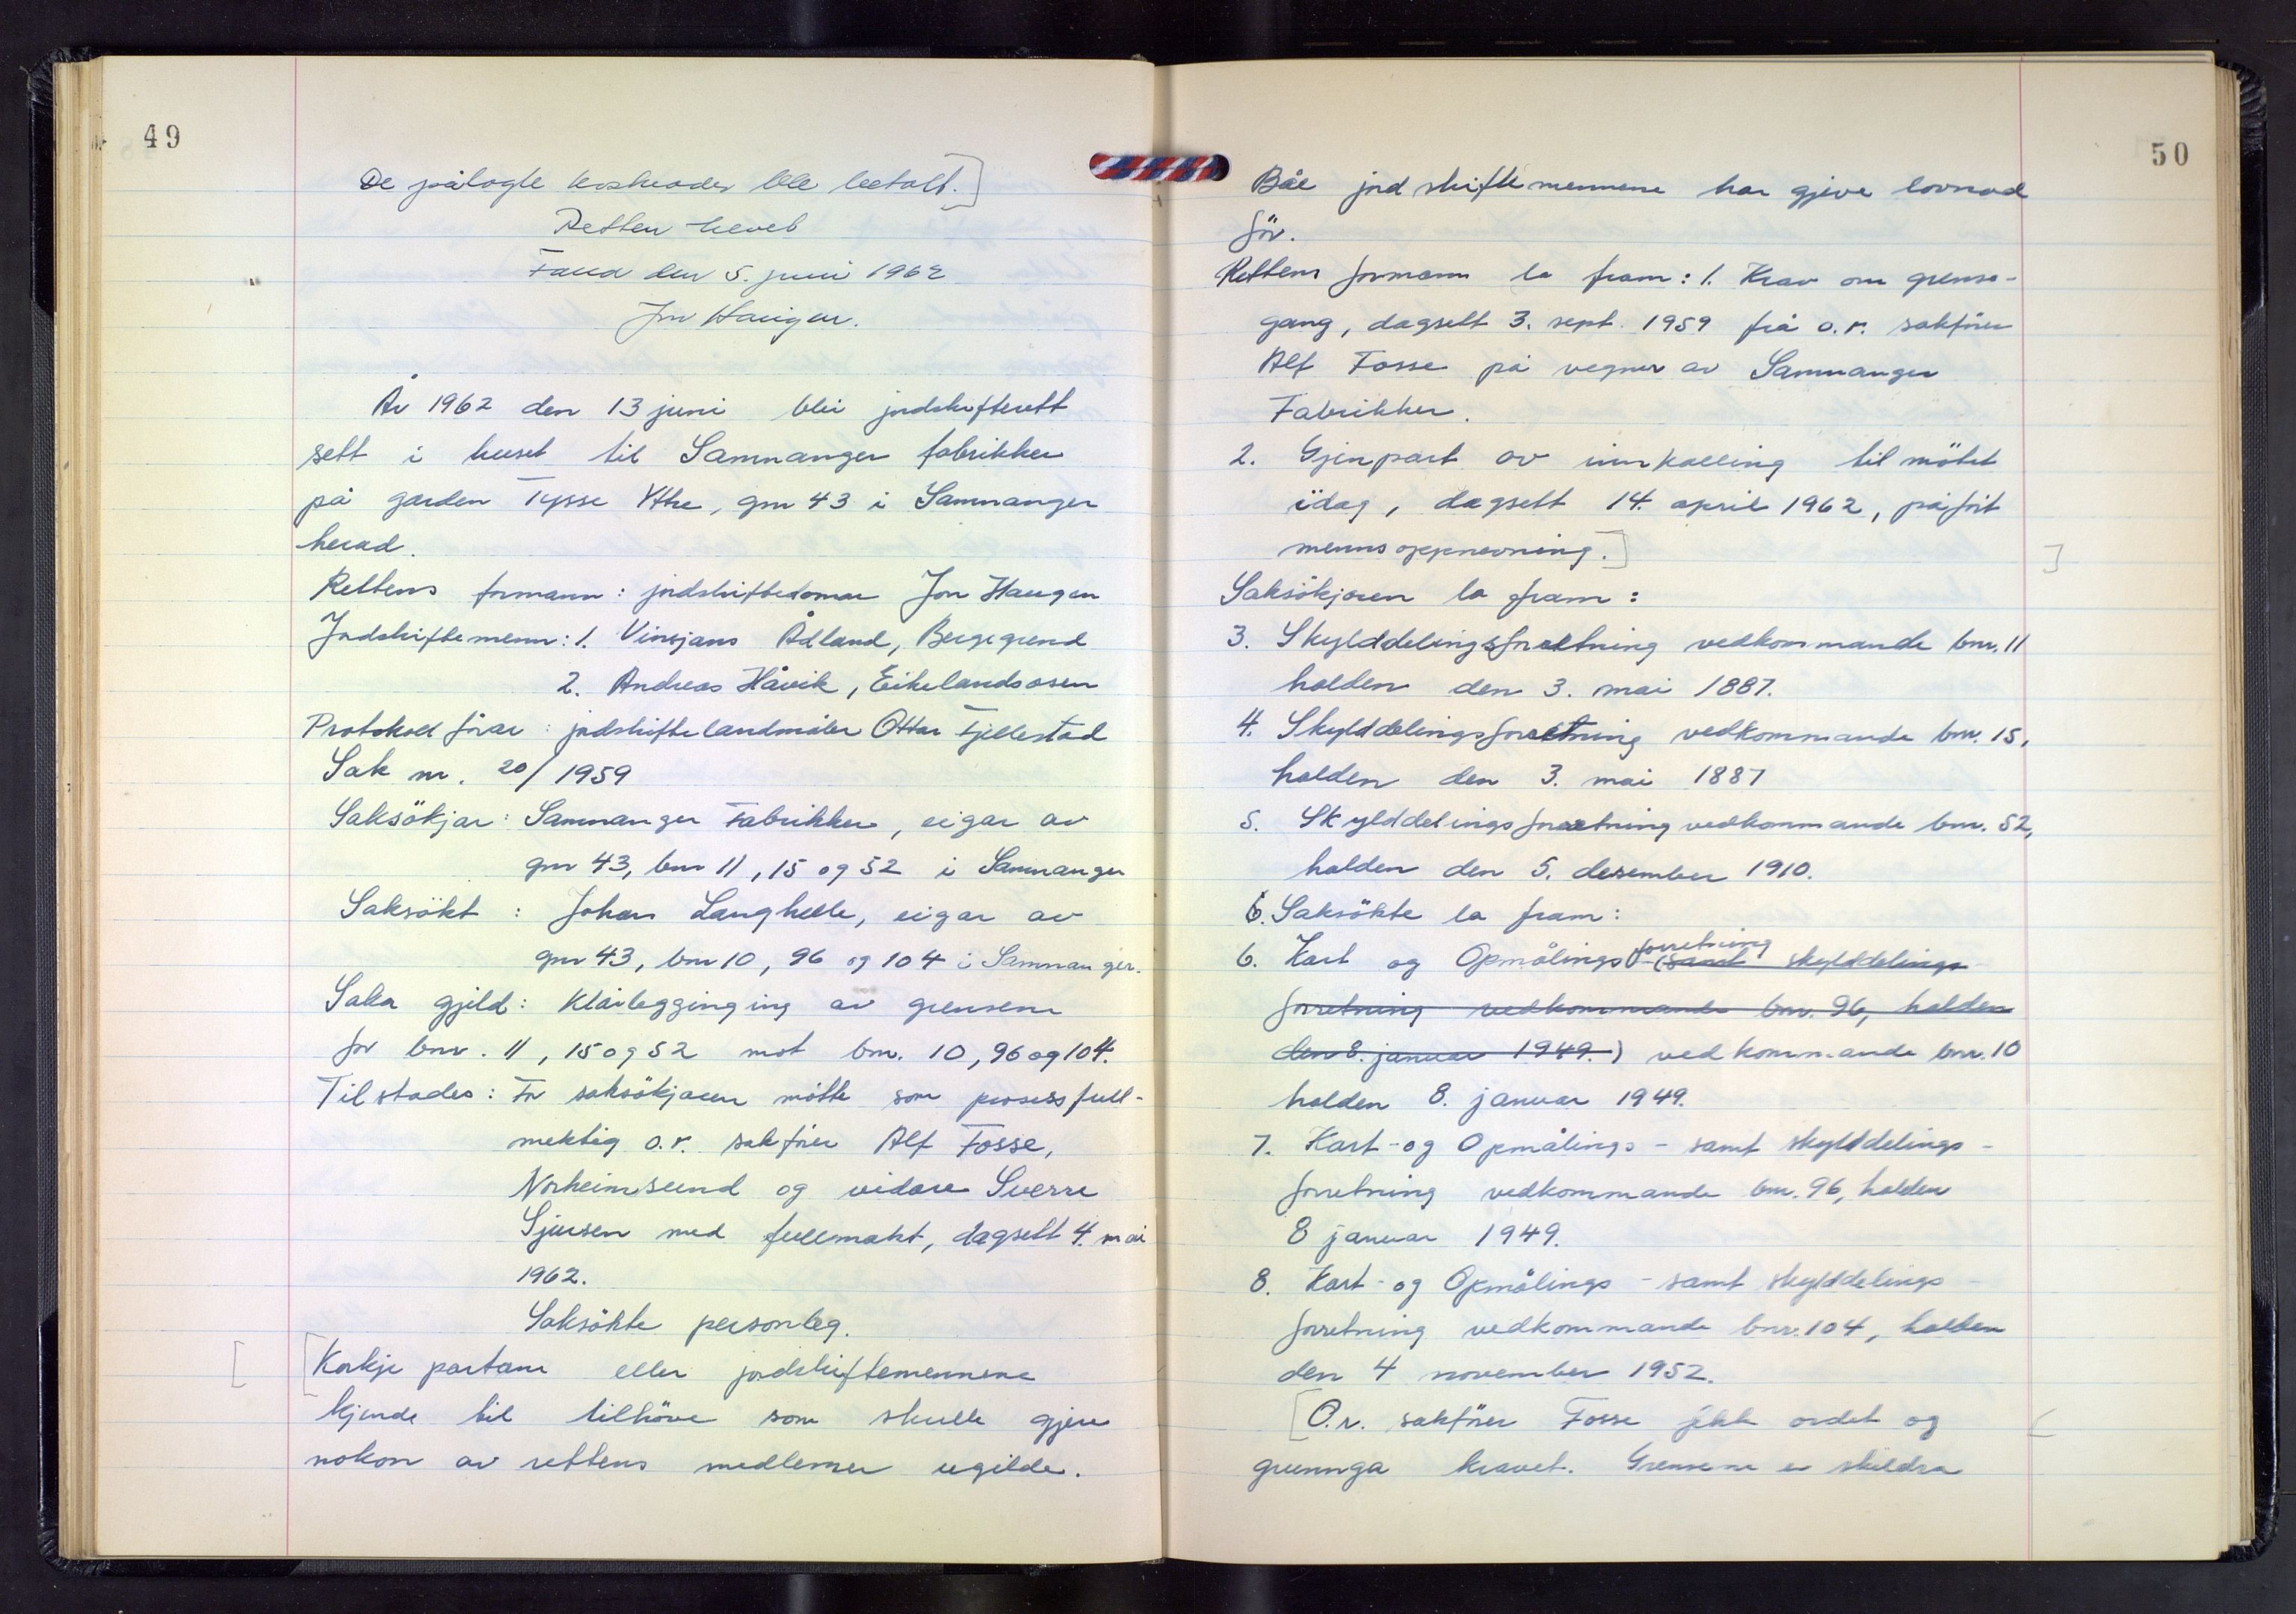 49
De pålagte kostnader ble betalt.]
Retten hevet
Fana den 5. juni 1962
Jon Haugen.
År 1962 den 13 juni blei jordskifterett
sett i huset til Samnanger fabrikker
på garden Tysse Ytre, gnr 43 i Samnanger
herad.
Rettens formann: jordskiftedomar Jon Haugen
Jordskiftemenn: 1. Vinsjans Ådland, Bergegrend
2. Andreas Håvik, Eikelandsosen
Protokollförar: jordskiftelandmåler Ottar Fjellestad
Sak nr. 20/1959
Saksökjar: Samnanger Fabrikker, eigar av
gnr 43, bnr 11, 15 og 52 i Samnanger
Saksökt: Johan Langhelle, eigar av
gnr 43, bnr 10, 96 og 104 i Samnanger.
Saka gjeld: Klårlegginging av grensene
for bnr. 11, 15 og 52 mot bnr. 10, 96 og 104.
Tilstades: For saksökjaren mötte som prosessfull-
mektig o.r. sakförer Alf Fosse,
Norheimsund og vidare Sverre
Sjursen med fullmakt, dagsett 4. mai
1962.
Saksökte personleg.
[ [Korkje partane eller jordskiftemennene
kjende til tilhöve som skulle gjere
nokon av rettens medlemer ugilde.
50
Båe jordskiftemennene har gjeve lovnad
för.
Rettens formann la fram: 1. Krav om grense-
gang, dagsett 3. sept. 1959 frå o.r. sakförer
Alf Fosse på vegner av Samnanger
Fabrikker.
2. Gjenpart av innkalling til mötet
idag, dagsett 14. april 1962, påfört
mennsoppnevning.] ]
Saksökjaren la fram:
3. Skylddelingsforretning vedkommande bnr. 11
halden den 3. mai 1887.
4. Skylddelingsforretning vedkommande bnr. 15,
halden den 3. mai 1887
5. Skylddelingsforretning vedkommande bnr. 52,
halden den 5. desember 1910.
6. Saksökte la fram:
6. Kart og Opmålings forretning (samt skylddelings-
forretning vedkommande bnr. 96, halden
den 8. januar 1949.) vedkommande bnr. 10
halden 8. januar 1949.
7. Kart- og Opmålings- samt skylddelings-
forretning vedkommande bnr. 96, halden
8 januar 1949.
8. Kart- og Opmålings- samt skylddelings-
forretning vedkommande bnr. 104, halden
den 4 november 1952.
[O.r. sakförer Fosse fekk ordet og
grunnga kravet. Grensene er skildra